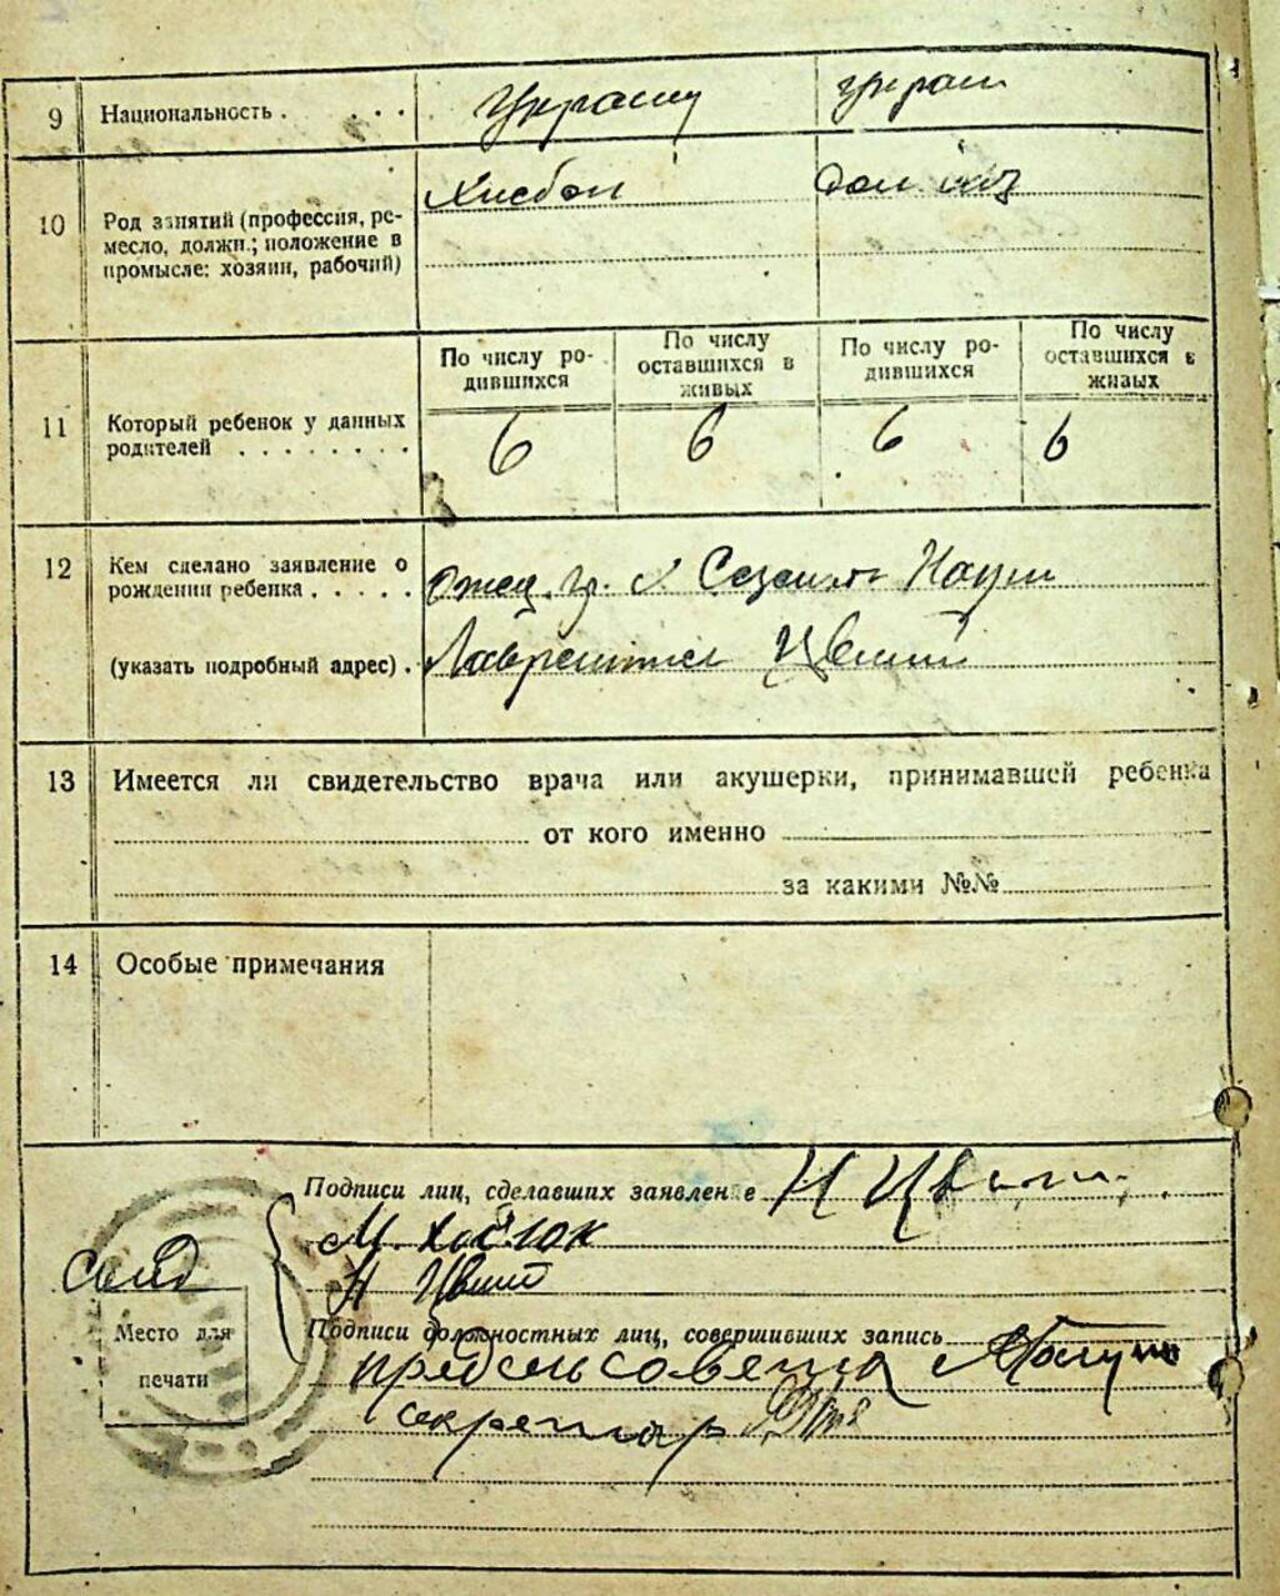 9 Национальность . . . . Украинц украин
10 Род занятий (профессия, ре-
месло, должн.; положение в
промысле: хозяин, рабочий)
Хлебоп Дом
По числу ро-
дившихся
По числу
оставшихся в
живых
По числу ро-
дившихся
По числу
оставшихся в
живых
11 Который ребенок у данных
родителей . . . . . . . .
6 6 6 6
12 Кем сделано заявление о
рождении ребенка . . . . .
Отец гр. х Наум
(указать подробный адрес) .
Лаврентиев Цвит
13 Имеется ли свидетельство врача или акушерки, принимавшей ребенка
от кого именно
за какими №№
14 Особые примечания
Подписи лиц, сделавших заявление Н Цвит
М.
Н Цвит
Место для
печати
Подписи должностных лиц, совершивших запись
предсельсовета
секретар